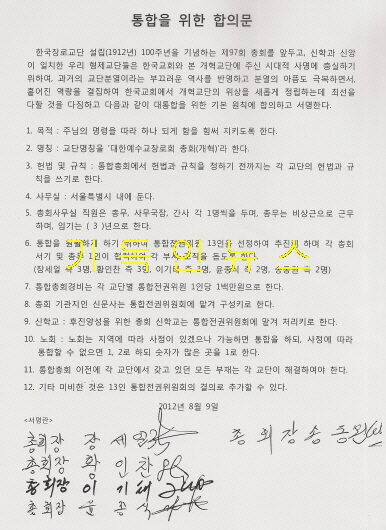 통합을 위한 합의문
한국장로교단 설립(1912년) 100주년을 기념하는 제97회 총회를 앞두고, 신학과 신앙
이 일치한 우리 형제교단들은 한국교회와 본 개혁교단에 주신 시대적 사명에 충실하기
위하여, 과거의 교단분열이라는 부끄러운 역사를 반영하고 분열의 아픔도 극복하면서,
흩어진 역량을 결집하여 한국교회에서 개혁교단의 위상을 새롭게 정립하는데 최선을
다할 것을 다짐하고 다음과 같이 대통합을 위한 기본 원칙에 합의하고 서명한다.
1. 목적 : 주님의 명령을 따라 하나 되게 함을 힘써 지키도록 한다.
2. 명칭 : 교단명칭을 '대한예수교장로회 총회(개혁)'라 한다.
3. 헌법 및 규칙 : 통합총회에서 헌법과 규칙을 정하기 전까지는 각 교단의 헌법과 규
칙을 쓰기로 한다.
4. 사무실 : 서울특별시 내에 둔다.
5. 총회사무실 직원은 총무, 사무국장, 간사 각 1명씩을 두며, 총무는 비상근으로 근무
하며, 임기는 ( 3 )년으로 한다.
6. 통합을 원활하게 하기 위하여 통합전권위원 13인을 선정하여 추진케 하며 각 총회
서기 및 총무 1인이 합력하여 각 부서 조직을 돕도록 한다.
(장세일 측 3명, 황인찬 측 3인, 이기태 측 3명, 윤종식 측 2명, 송동원 측 2명)
기독인뉴스
7. 통합총회경비는 각 교단별 통합전권위원 1인당 1백만원으로 한다.
8. 총회 기관지인 신문사는 통합전권위원회에 맡겨 구성키로 한다.
9. 신학교 : 후진양성을 위한 총회 신학교는 통합전권위원회에 맡겨 처리키로 한다.
10. 노회 : 노회는 지역에 따라 사정이 있겠으나 가능하면 통합을 하되, 사정에 따라
통합할 수 없으면 1, 2로 하되 숫자가 많은 곳을 1로 한다.
11. 통합총회 이전에 각 교단에서 갖고 있던 모든 부채는 각 교단이 해결하여야 한다.
12. 기타 미비한 것은 13인 통합전권위원회의 결의로 추가할 수 있다.
2012년 8월 9일
<서명란>
총회장 장세일
총회장 송동원
총회장 황인찬
총회장 이기태
총회장 윤종식